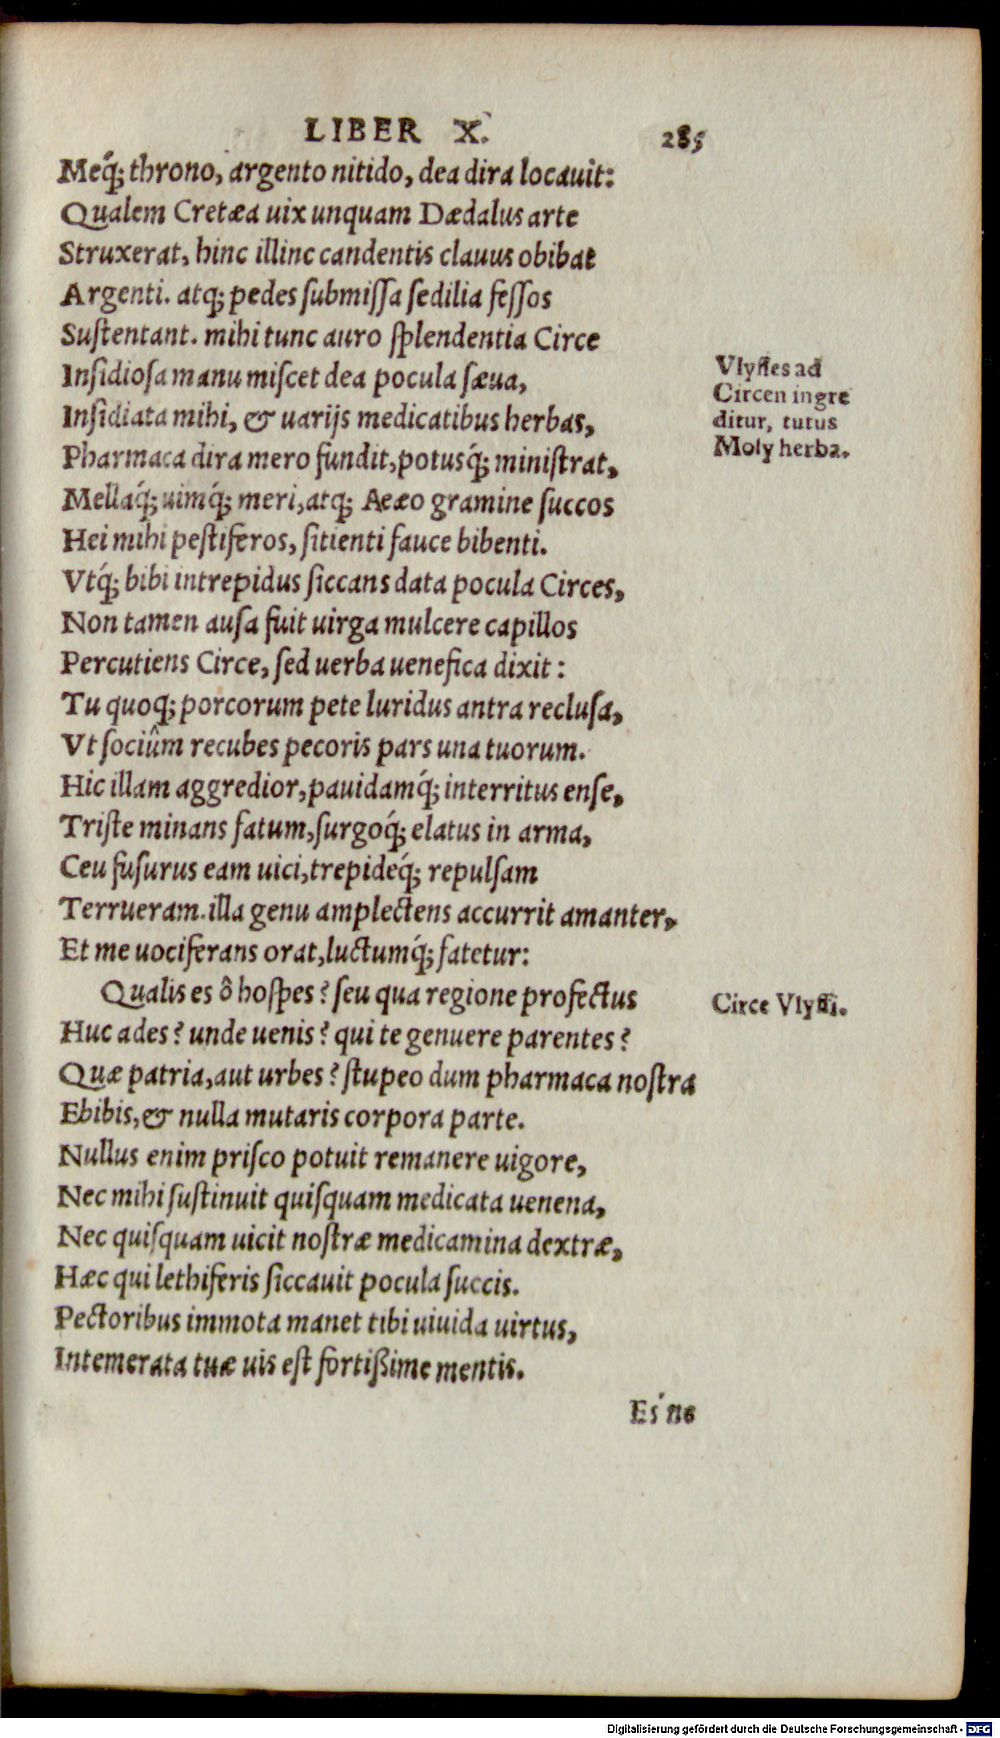 LIBER X. 285
Meq́; throno, argento nitido, dea dira locauit:
Qualem Cretæa uix unquam Dædalus arte
Struxerat, hinc illinc candentis clauus obibat
Argenti. atq; pedes submissa sedilia fessos
Sustentant. mihi tunc auro splendentia Circe
Insidiosa manu miscet dea pocula sæua,
Vlysses ad
Circen ingre
ditur, tutus
Moly herba.
Insidiata mihi, & uarijs medicatibus herbas,
Pharmaca dira mero fundit, potusq́; ministrat,
Mellaq́; uimq́; meri, atq; Aeæo gramine succos
Hei mihi pestiferos, sitienti fauce bibenti.
Vtq́; bibi intrepidus siccans data pocula Circes,
Non tamen ausa fuit uirga mulcere capillos
Percutiens Circe, sed uerba uenefica dixit:
Tu quoq; porcorum pete luridus antra reclusa,
Vt sociûm recubes pecoris pars una tuorum.
Hic illam aggredior, pauidamq́; interritus ense,
Triste minans fatum, surgoq́; elatus in arma,
Ceu fusurus eam uici, trepideq́; repulsam
Terrueram. illa genu amplectens accurrit amanter,
Et me uociferans orat, luctumq́; fatetur:
Qualis es ô hospes? seu qua regione profectus
Circe Vlyssi.
Huc ades? unde uenis? qui te genuere parentes?
Quæ patria, aut urbes? stupeo dum pharmaca nostra
Ebibis, & nulla mutaris corpora parte.
Nullus enim prisco potuit remanere uigore,
Nec mihi sustinuit quisquam medicata uenena,
Nec quisquam uicit nostræ medicamina dextræ,
Hæc qui lethiferis siccauit pocula succis.
Pectoribus immota manet tibi uiuida uirtus,
Intemerata tuæ uis est fortißime mentis.
Es ne
Digitalisierung gefördert durch die Deutsche Forschungsgemeinschaft - DFG